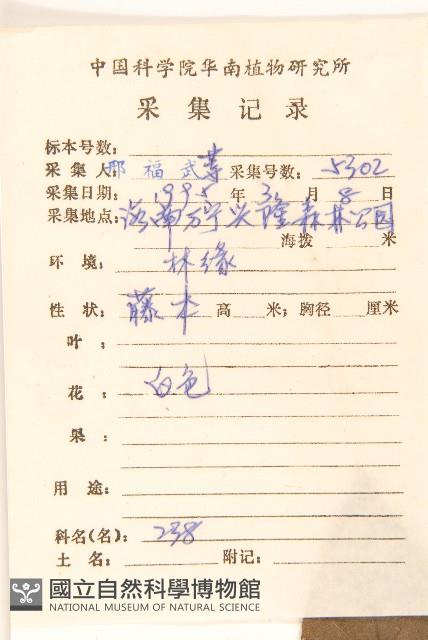 中国科学院华南植物研究所
采集记录
标本号数:
采集人: 邢福武等 采集号数: 5302
采集日期: 1995 年 3 月 8 日
采集地点: 海南万宁兴隆森林公园
海拨 米
环境: 林缘
性状: 藤本 高 米; 胸径 厘米
叶:
花: 白色
果:
用途:
科名(名): 238
土名: 附记:
國立自然科學博物館
NATIONAL MUSEUM OF NATURAL SCIENCE